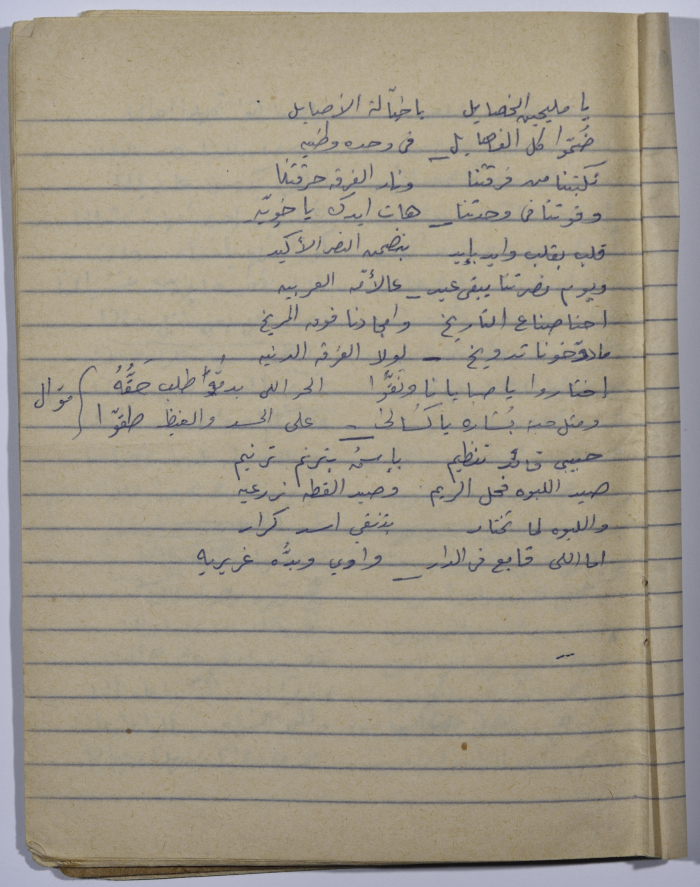 يا مليحين الخصايل يا خيّالة الأصايل
ضُمّوا كل الفصايل في وحده وطنيه
نكبتنا من فرقتنا ونار الفرقه حرقتنا
وقوتنا في وحدتنا هات ايدك يا خويّه
قلب بقلب وايد بإيد بنضمن النصر الأكيد
ويوم نصرتنا يبقى عيد عالأمّه العربيه
احنا صناع التاريخ وامجادنا فوق المريخ
ما دوّخونا تدويخ لولا الفرقه الدنيه
اختاروا يا صبايانا ونَقّوا الحر اللي بدمّو أطلب حَقُّهُ
ومثل بشاره يا على الحسد والغيظ طقوّا
موّال
حبيبي قائد تنظيم بإسمُه بترنم ترنيم
صيد اللبوه فحل الريم وصيد القطه زرعيه
واللبوه لما تختار بتنقي اسد كرار
اما اللي قابع في الدار واوي وبدُّه غريريه